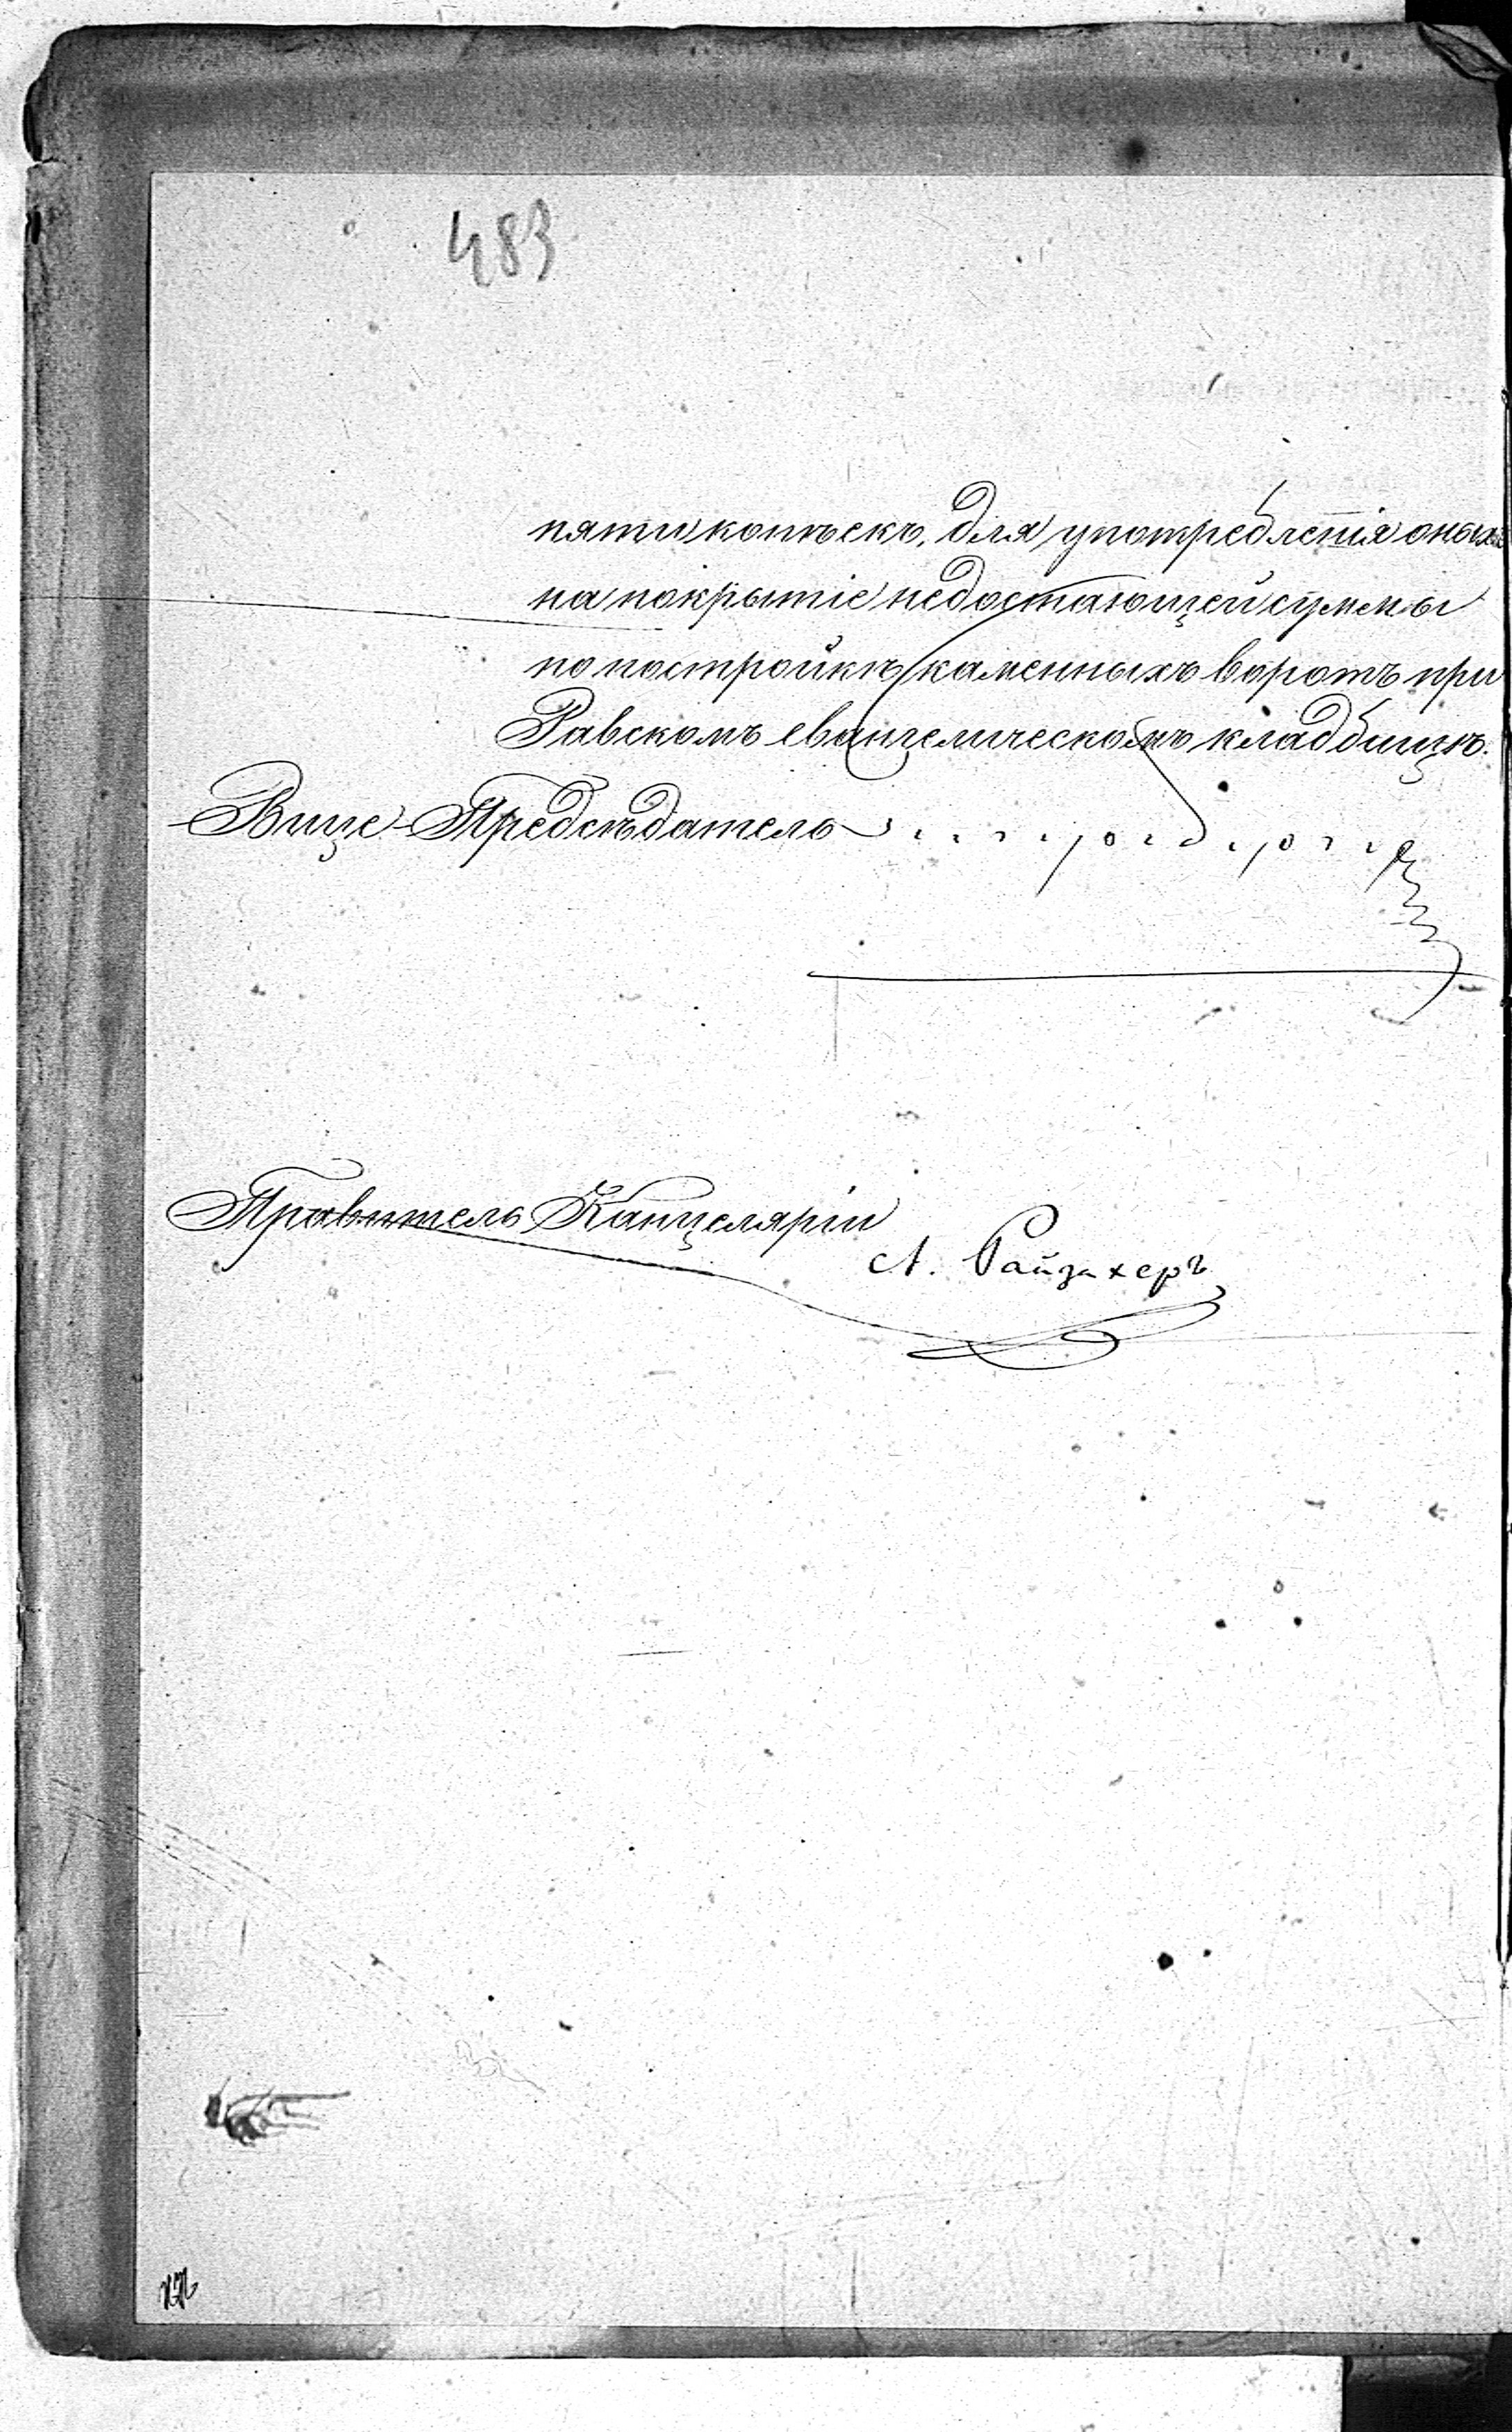 483
пяти копѣекъ, для употребленія оныхъ
на покрытіе недостающей суммы
по постройкѣ каменныхъ воротъ при
Равскомъ евангелическомъ кладбищѣ.
Вице-Предсѣдатель
Правитель Канцеляріи
А. Райзахеръ